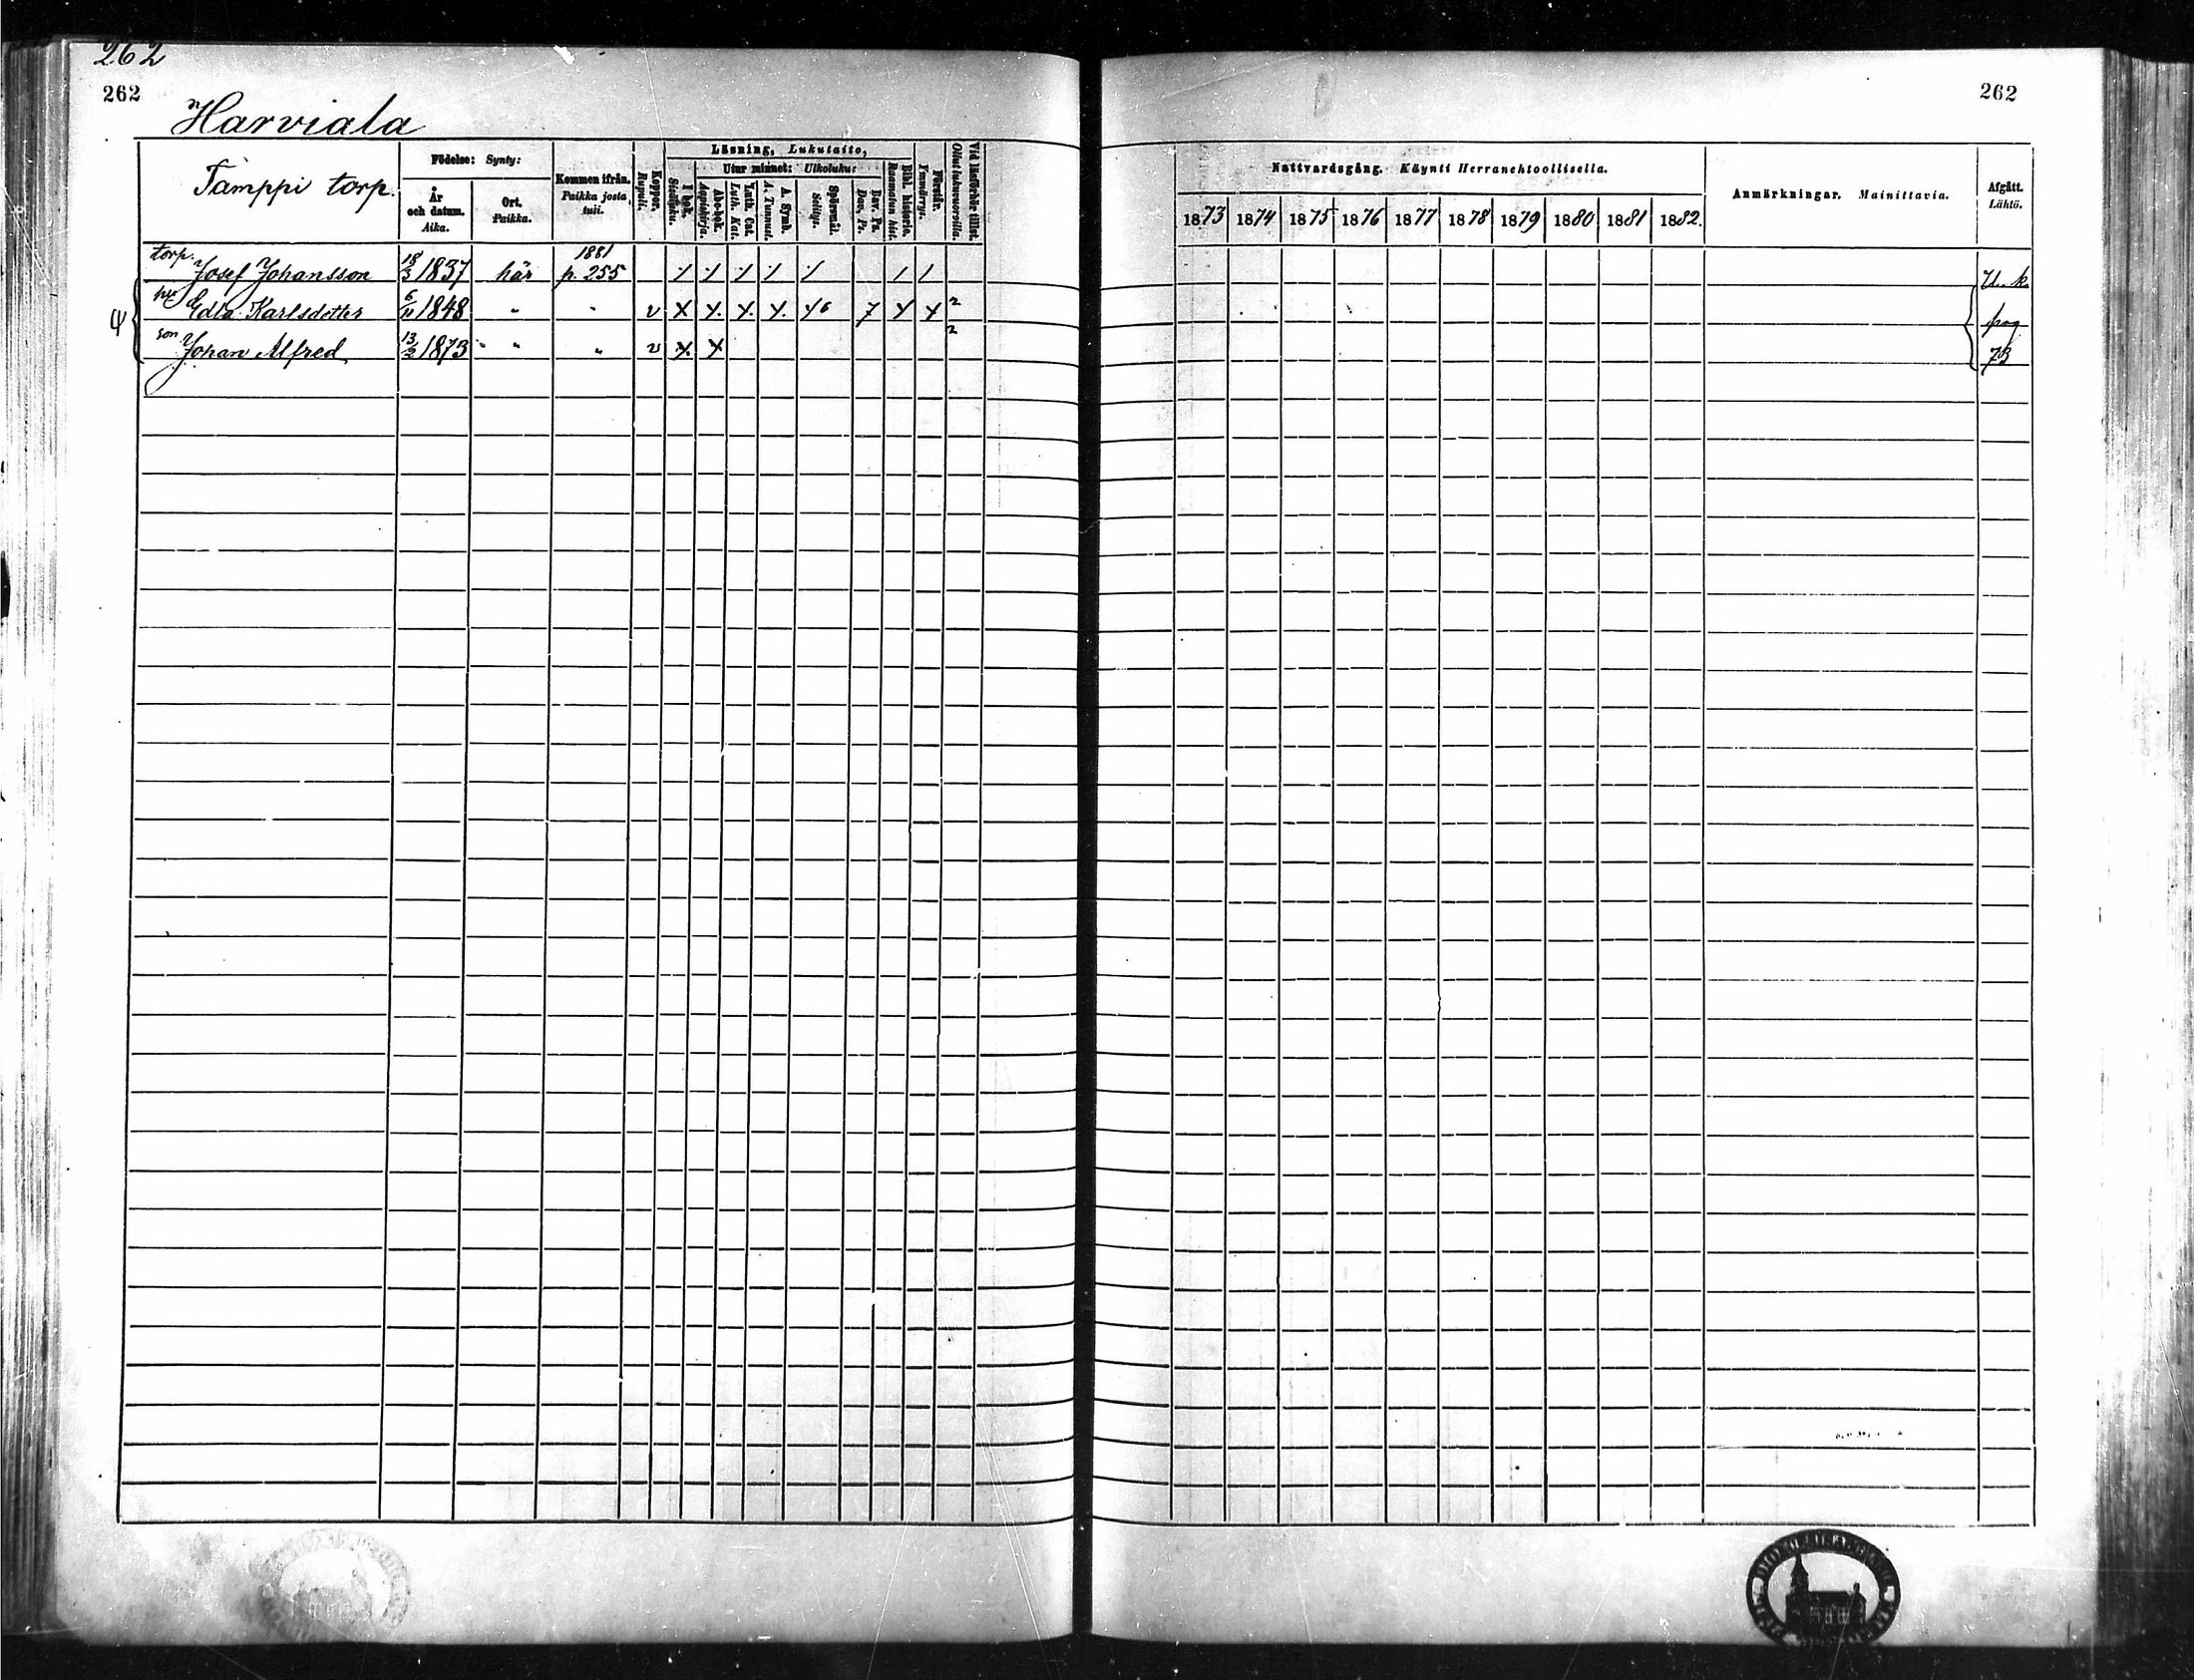 262
262
262
Harviala
Tamppi torp.
Födelse: Synty:
År och datum. Aika.
Ort. Paikka.
Kommen ifrån. Paikka josta tuli.
Koppor. Rupuli.
Läsning, Lukutaito,
I bok. Sisäluku.
Utur minnet: Ulkoluku:
Abc-bok. Aapiskirja.
Luth. Cat. Luth. Kat.
A. Symb. A. Tunnust.
Spörsmål. Selitys.
Dav. Ps. Dav. Ps.
Bibl. historia. Raamatun hist.
Förstår. Ymmärrys.
Vid läsförhör tillst. Ollut lukuvuoroilla.
Nattvardsgång. Käynti Herranehtoollisella.
1873 1874 1875 1876 1877 1878 1879 1880 1881 1882.
Anmärkningar. Mainittavia.
Afgått. Lähtö.
torp. Josef Johansson 18/3 1837 här 1881 p. 255 U. k.
Edla Karlsdotter 6/11 1848 " " v x x x x x6 7 x x 2 pag
son Johan Alfred 13/2 1873 " " v x x 2 73